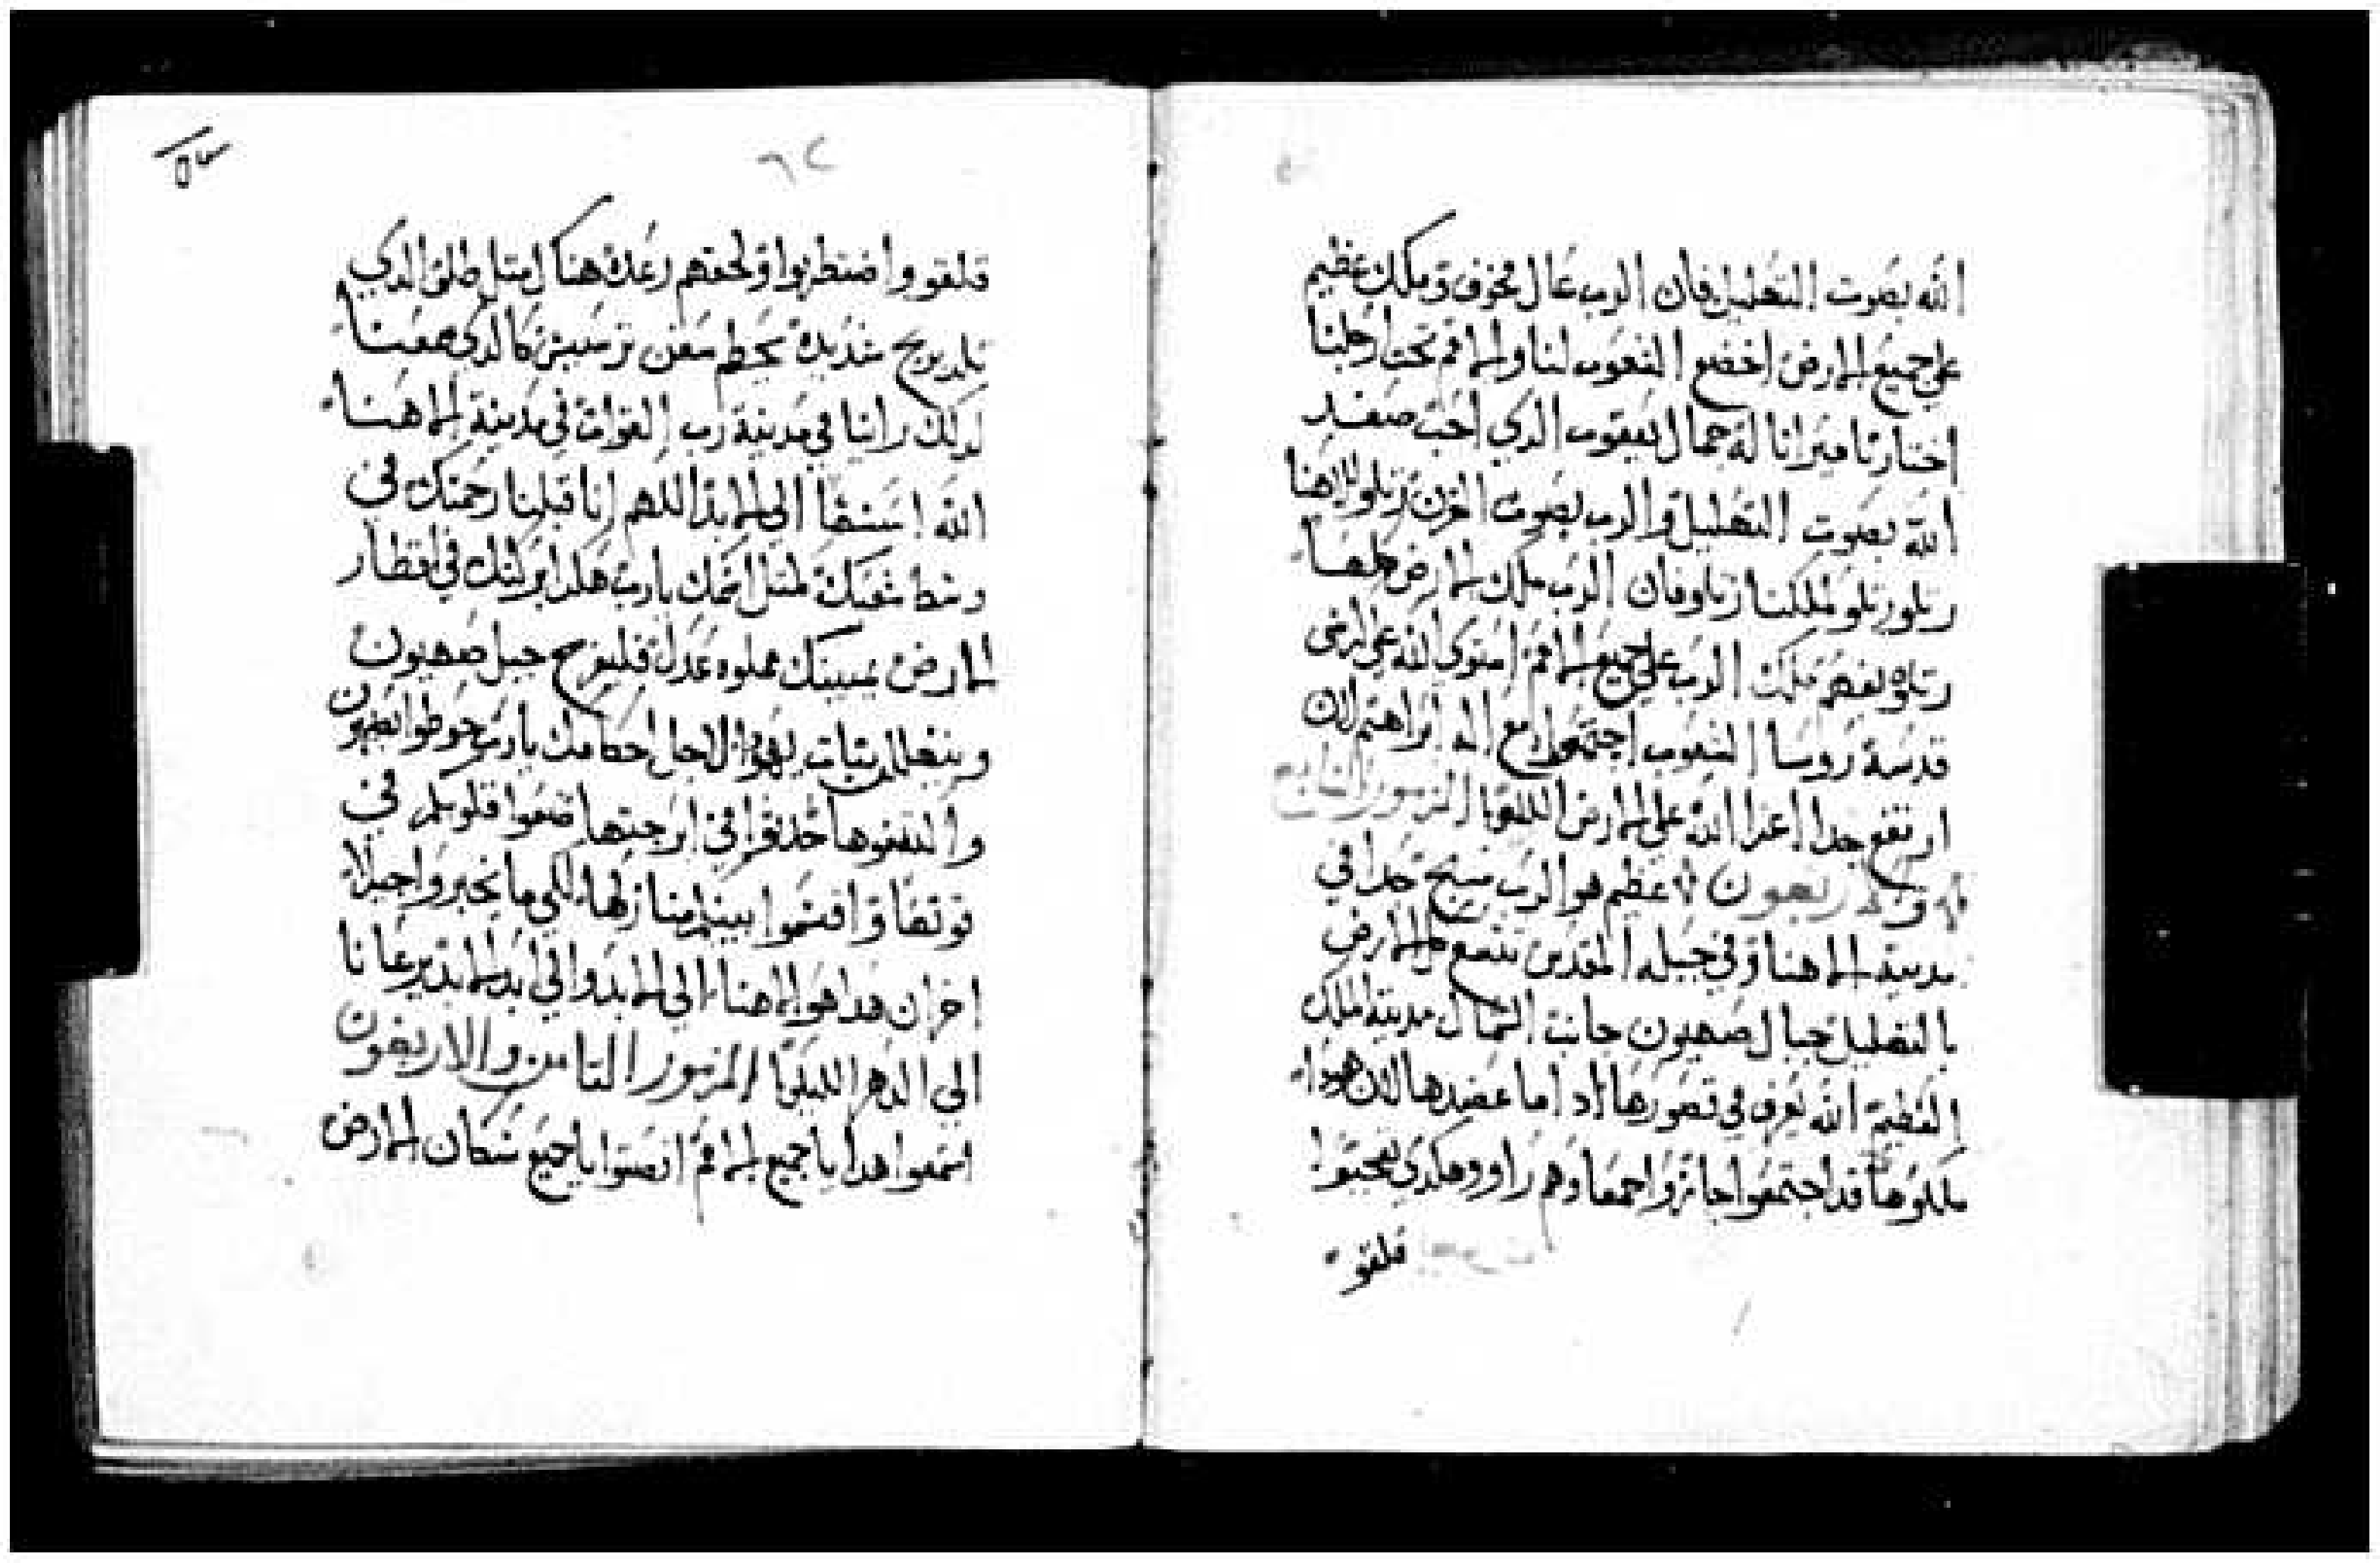 الله بصوت التهليل فان الرب عال مخوف وملك عظيم
على جميع الارض اخضع الشعوب لنا والامم تحت ارجلنا
اختارنا ميراثا له جمال يعقوب الذي احب صعد
الله بصوت التهليل والرب بصوت القرن رتلو لالاهنا
رتلو رتلو لملكنا رتلو فان الرب ملك الارض كلها
رتلو بفهم ملك الرب على جميع الامم استوى الله على كرسي
قدسه روسا الشعوب اجتمعوا مع اله ابراهيم لان
ارتفع جدا اعزا الله على الارض الليلويا المزمور السابع
والاربعون عظيم هو الرب مسبح جدا في
مدينة الاهنا وفي جبله المقدس تتسع كل الارض
بالتهليل جبال صهيون جانب الشمال مدينة الملك
العظيم الله يعرف في قصورها اذا ما عضدها لان هوذا
ملكوها قد اجتمعوا جازوا جمعا وهم راوو هكدى تعجبوا
قلقو
٦٢
٥٣
قلقو واضطربوا ولحقهم رعدة هناك مثل طلق الذي
تلد بريح شديدة يحطم سفن ترسيس كالذي سمعنا
لذلك راينا في مدينة رب القوات في مدينة الاهنا
الله اسسها الى الابد اللهم انا قبلنا رحمتك في
وسط شعبك مثل اسمك يارب هكدا بركتك في اقطار
الارض يمينك مملوه عدلا فليفرح جبل صهيون
ويتهلل بنات يهوذا لاجل احكامك يارب حوطوا بصهيون
والتفوها حدثوا في ابرجتها ضعوا قلوبكم في
قوتها واقسموا بينكم منازلها لكي ما تخبروا جيلا
اخر ان هدا هو الاهنا الى الابد والى ابد الابد يرعانا
الى الدهر الليلويا المزمور التامن والاربعون
اسمعوا هدا يا جميع الامم انصتوا يا جميع سكان الارض